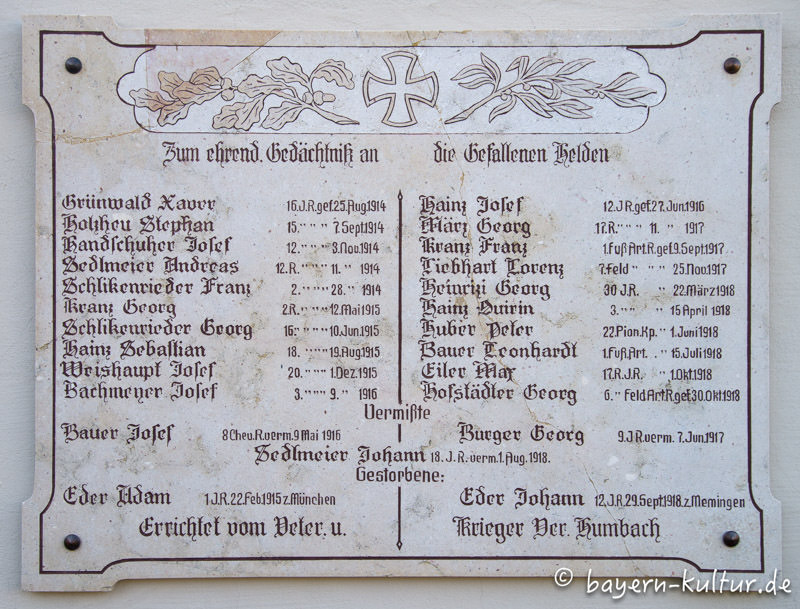 Zum ehrend. Gedächtniß an die Gefallenen Helden
Grünwald Xaver 16.J.R.gef.25.Aug.1914
Holzheu Stephan 15. " " " 7.Sept.1914
Handschuher Josef 12. " " " 3.Nov.1914
Sedlmeier Andreas 12.R. " " " 11. " 1914
Schlikenrieder Franz 2. " " " 28. " 1914
Kranz Georg 2.R. " " 12.Mai 1915
Schlikenrieder Georg 16. " " " 10.Jun.1915
Hainz Sebastian 18. " " " 19.Aug.1915
Weishaupt Josef 20. " " " 1.Dez.1915
Bachmeyer Josef 3. " " " 9. " 1916
Hainz Josef 12.J.R.gef.27.Jun.1916
März Georg 17.R. " " " 11. " 1917
Kranz Franz 1.Fuß Art.R.gef.9.Sept.1917
Liebhart Lorenz 7.Feld " " " 25.Nov.1917
Heinrizi Georg 30 J.R. " 22.März 1918
Hainz Quirin 3. " " " 15 April 1918
Huber Peter 22.Pion.Kp. " 1.Juni 1918
Bauer Leonhardt 1.Fuß.Art. . " 15.Juli 1918
Eiler Max 17.R.J.R. " 1.Okt.1918
Hofstädter Georg 6. " Feld.Art.R.gef.30.Okt.1918
Vermißte
Bauer Josef 8 Chev.R.verm.9 Mai 1916 Burger Georg 9.J.R.verm. 7.Jun.1917
Sedlmeier Johann 18.J.R.verm.1.Aug.1918.
Gestorbene:
Eder Adam 1.J.R.22.Feb.1915 z.München Eder Johann 12.J.R.29.Sept.1918.z.Memingen
Errichtet vom Veter. u. Krieger Ver. Humbach
© bayern-kultur.de